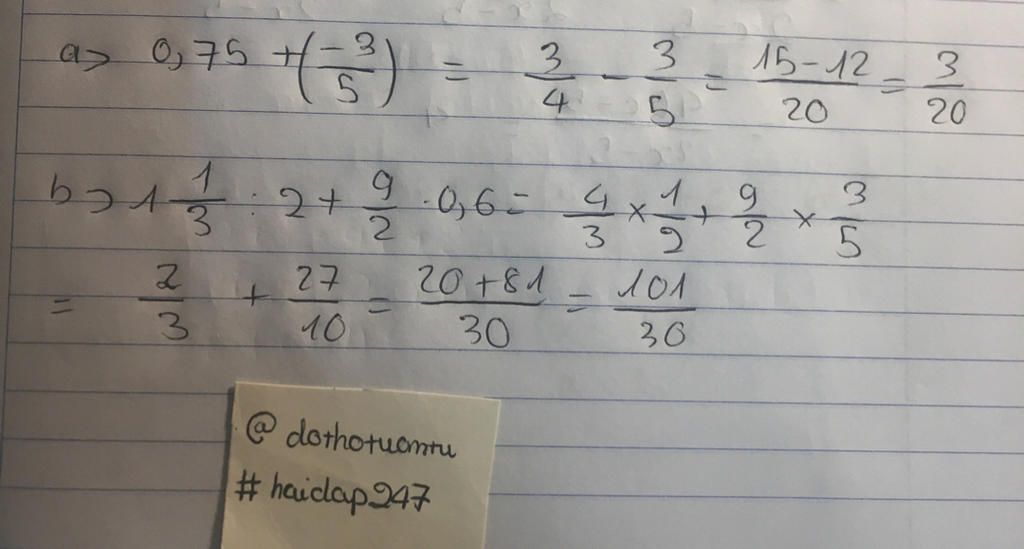 a> 0,75 + (-3/5) = 3/4 - 3/5 = 15-12/20 = 3/20
b> 1 1/3 : 2 + 9/2 . 0,6 = 4/3 × 1/2 + 9/2 × 3/5
= 2/3 + 27/10 = 20+81/30 = 101/30
@ dothotuamtu
# haidap247